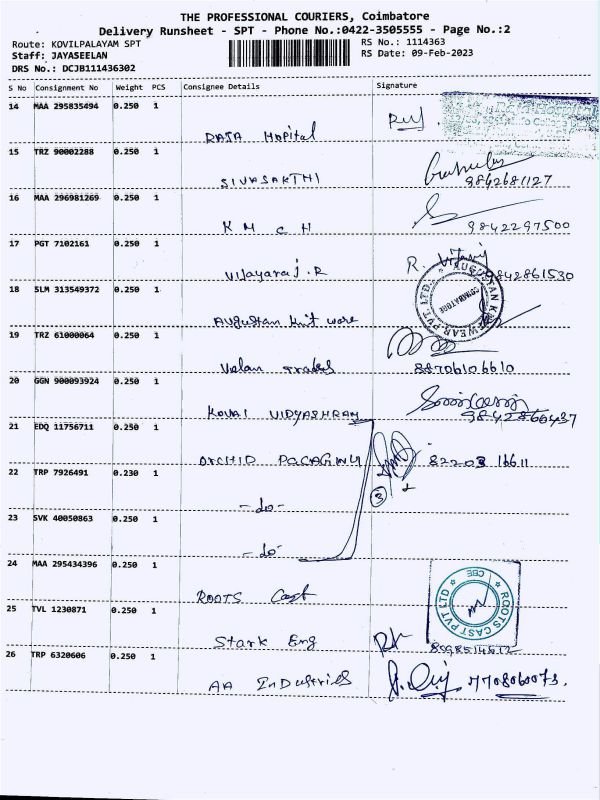 THE PROFESSIONAL COURIERS, Coimbatore
Delivery Runsheet - SPT - Phone No.:0422-3505555 - Page No.:2
Route: KOVILPALAYAM SPT
RS No.: 1114363
Staff: JAYASEELAN
RS Date: 09-Feb-2023
DRS No.: DCJB111436302
S No Consignment No Weight PCS Consignee Details Signature
14 MAA 295835494 0.250 1
RAJA Hopital
15 TRZ 90002288 0.250 1
SIVASAKTHI
9842681127
16 MAA 296981269 0.250 1
K M C H
9842297500
17 PGT 7102161 0.250 1
Vijayaraj.R
R.
9842861530
18 SLM 313549372 0.250 1
Augustan knit ware
COIMBATORE
19 TRZ 61000064 0.250 1
Velan Traders
88706106610
20 GGN 900093924 0.250 1
KOVAI VIDYASHRAM
9842860437
21 EDQ 11756711 0.250 1
ORCHID PACAGING
82203 16611
22 TRP 7926491 0.230 1
3
-do-
23 SVK 40050863 0.250 1
-do-
24 MAA 295434396 0.250 1
ROOTS Cast
ROOTS CAST PVT LTD
CBE
25 TVL 1230871 0.250 1
Stark Eng
26 TRP 6320606 0.250 1
AA Industries
7708060073.